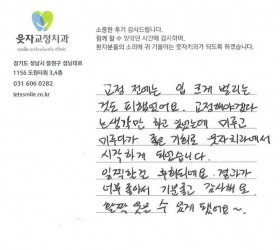 웃자교정치과
smile orthodontic clinic
경기도 성남시 중원구 성남대로
1156 도림타워 3,4층
031 606 0282
letssmile.co.kr
소중한 후기 감사드립니다.
함께 할 수 있었던 시간에 감사하며,
환자분들의 소리에 귀 기울이는 웃자치과가 되도록 하겠습니다.
교정 전에는 입 크게 벌리는
것도 피했었어요. 교정해야겠다
는 생각만 하고 있었는데 미루고
미루다가 좋은 기회로 웃자치과에서
시작하게 되었습니다.
일찍할걸 후회되네요. 결과가
너무 좋아서 기분좋고 감사해요.
활짝 웃을 수 있게 됐어요~.